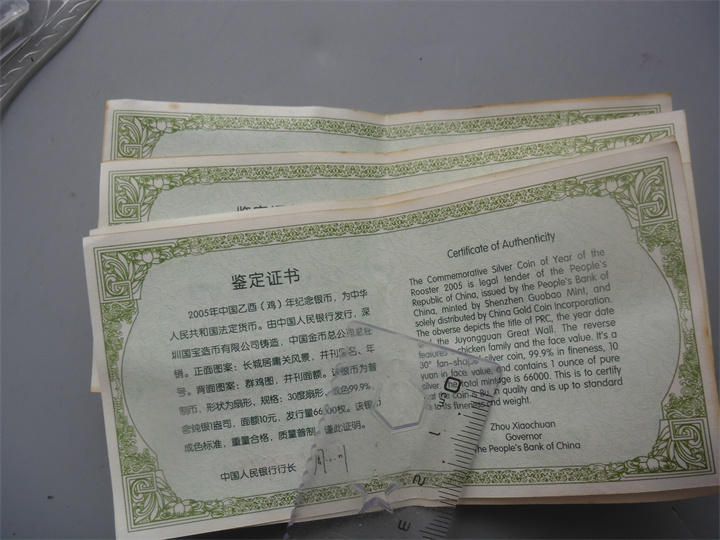 鉴定证书
2005年中国乙酉（鸡）年纪念银币，为中华
人民共和国法定货币。由中国人民银行发行，深
圳国宝造币有限公司铸造，中国金币总公司总经
销。正面图案：长城居庸关风景，并刊国名、年
号。背面图案：群鸡图，并刊面额。该银币为普
制币，形状为扇形，规格：30度扇形，成色99.9%，
念纯银1盎司，面额10元，发行量66000枚。该银币
成色标准，重量合格，质量普制。谨此证明。
中国人民银行行长
Certificate of Authenticity
The Commemorative Silver Coin of Year of the
Rooster 2005 is legal tender of the People's
Republic of China, issued by the People's Bank of
China, minted by Shenzhen Guobao Mint, and
solely distributed by China Gold Coin Incorporation.
The obverse depicts the title of PRC, the year date
the Juyongguan Great Wall. The reverse
features chicken family and the face value. It's a
30° fan-shaped silver coin, 99.9% in fineness, 10
yuan in face value, and contains 1 ounce of pure
silver. The total mintage is 66000. This is to certify
that the coin is quality and is up to standard
its fineness and weight.
Zhou Xiaochuan
Governor
The People's Bank of China
0
cm
1
2
3